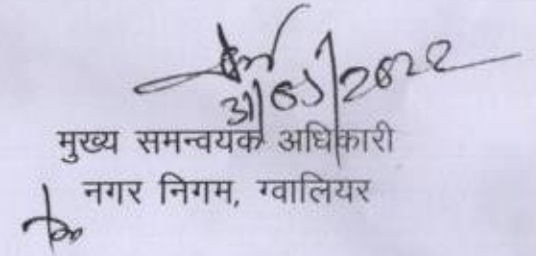 31/05/2022
मुख्य समन्वयक अधिकारी
नगर निगम, ग्वालियर